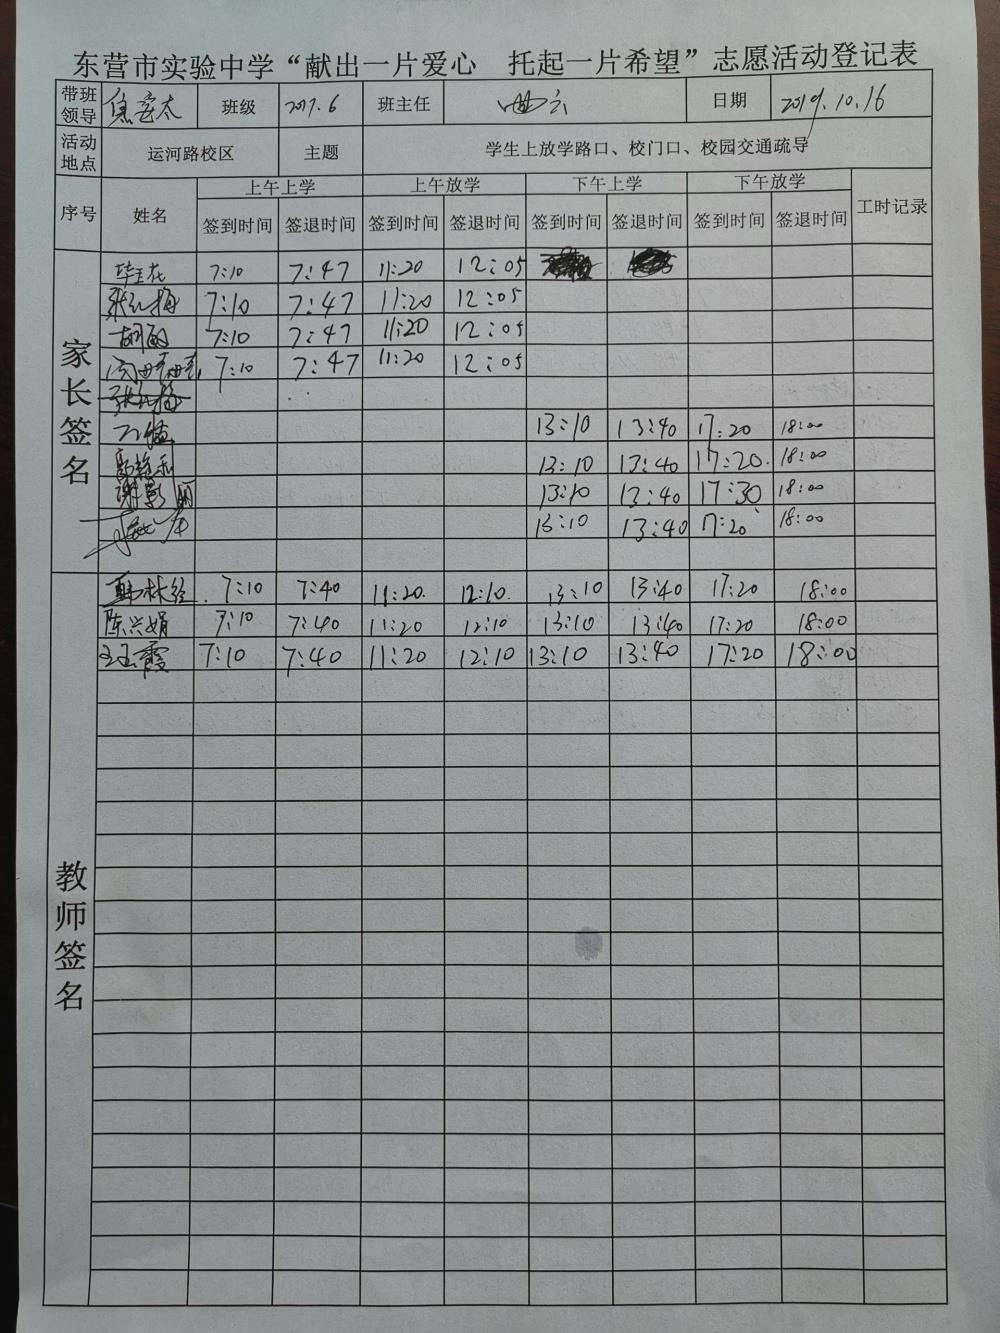 东营市实验中学“献出一片爱心 托起一片希望”志愿活动登记表
带班领导 班级 2017.6 班主任 曲云 日期 2019.10.16
活动地点 运河路校区 主题 学生上放学路口、校门口、校园交通疏导
序号 姓名 上午上学 上午放学 下午上学 下午放学 工时记录
签到时间 签退时间 签到时间 签退时间 签到时间 签退时间 签到时间 签退时间
家长签名
7:10 7:47 11:20 12:05
张红梅 7:10 7:47 11:20 12:05
胡丽 7:10 7:47 11:20 12:05
闫冉冉 7:10 7:47 11:20 12:05
张红梅
13:10 13:40 17:20 18:00
郭艳利 13:10 13:40 17:20. 18:00
谢影丽 13:10 13:40 17:30 18:00
13:10 13:40 17:20 18:00
教师签名
韩林经 7:10 7:40 11:20. 12:10. 13:10 13:40 17:20 18:00
陈兴娟 7:10 7:40 11:20 12:10 13:10 13:40 17:20 18:00
王玉霞 7:10 7:40 11:20 12:10 13:10 13:40 17:20 18:00